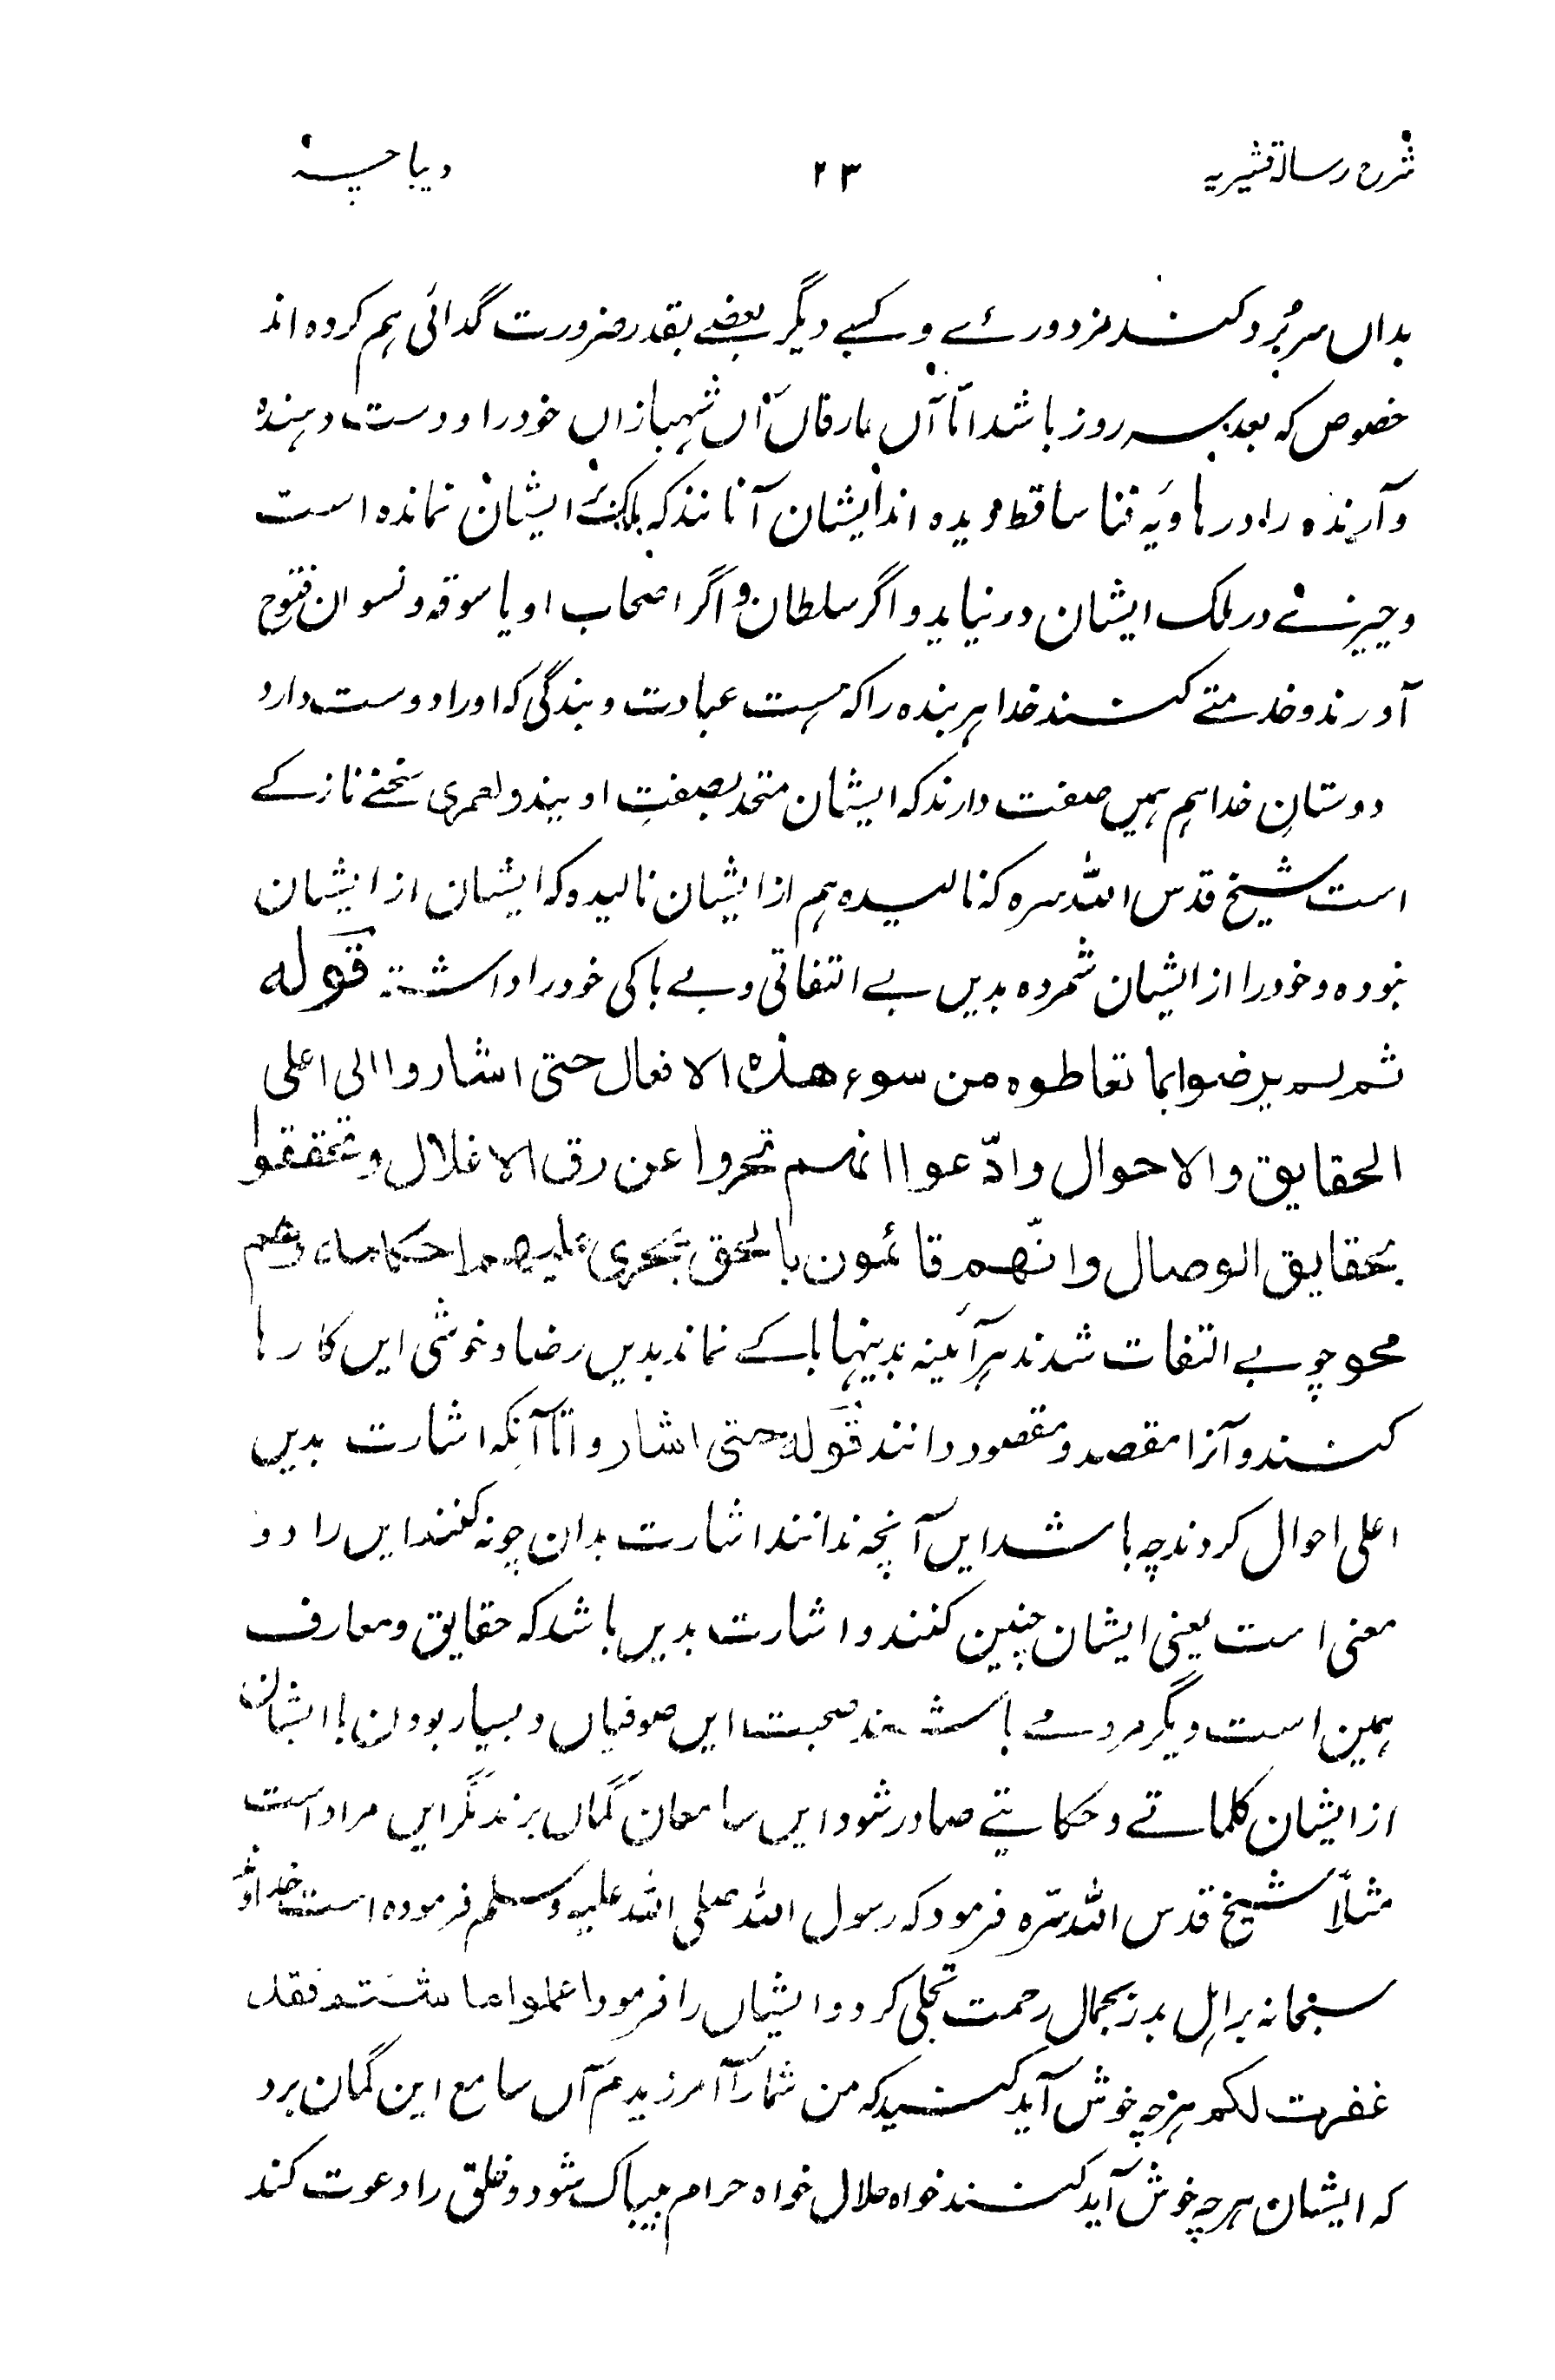 شرح رسالۀ قشیریہ ۲۳ دیباچہ
بداں سر بُرد کنند مزدورئے و کسبے دیگر بعضے بقدر ضرورت گدائی ہم کردہ اند
خصوص کہ بعد سہ روز باشد امّا آں عارفاں آں شہبازاں خود را و دست دہندہ
و آرندہ را در ہاویۂ فنا ساقط دیدہ اند ایشان آنانند کہ ملک ایشان نماندہ است
و چیزے در ملک ایشان در نیاید و اگر سلطان و اگر اصحاب او یا سوقہ و نسوان فتوح
آورند و خدمتے کنند خدا ہر بندہ را کہ ہست عبادت و بندگی کہ او را دوست دارد
دوستانِ خدا ہم ہمیں صفت دارند کہ ایشان متحد بصفتِ اویند و لعمری سخنے نازکے
است شیخ قدس اللہ سرہ کہ نالیدہ ہم از ایشان نالیدہ کہ ایشان از ایشان
نبودہ و خود را از ایشان شمردہ بدیں بے التفاتی و بے باکی خود را داشتہ قوله
ثم لم یرضوا بما تعاطوه من سوء هذه الافعال حتی اشاروا الی اعلی
الحقایق والاحوال وادّعوا انهم تحروا عن رق الاغلال وتحققوا
بحقایق الوصال وانّهم قائمون بالحق تجری علیهم احکامه وهم
محو چو بے التفات شدند ہر آئینہ بدینہا باکے نماند بدیں رضا و خوشی ایں کارہا
کنند و آنرا مقصد و مقصود دانند قوله حتی اشاروا تا آنکہ اشارت بدیں
اعلی احوال کردند چہ باشد ایں آنچہ ندانند اشارت بدان چونہ کنند ایں را دو
معنی است یعنی ایشان چنین کنند و اشارت بدیں باشد کہ حقایق و معارف
ہمین است دیگر مردے باشند صحبت ایں صوفیاں و بسیار بودن با ایشان
از ایشان کلماتے و حکایتے صادر شود ایں سامعان گماں برند مگر ایں مراد است
مثلًا شیخ قدس اللہ سرّہ فرمود کہ رسول اللہ صلی اللہ علیہ وسلم فرمودہ است خداوند
سبحانہ بر اہل بدر بجمال رحمت تجلی کرد و ایشاں را فرمود اعملوا ما شئتم فقد
غفرت لکم ہرچہ خوش آید کنید کہ من شما را آمرزیدم آں سامع این گمان برد
کہ ایشان ہرچہ خوش آید کنند خواہ حلال خواہ حرام بیباک شود و خلق را دعوت کند